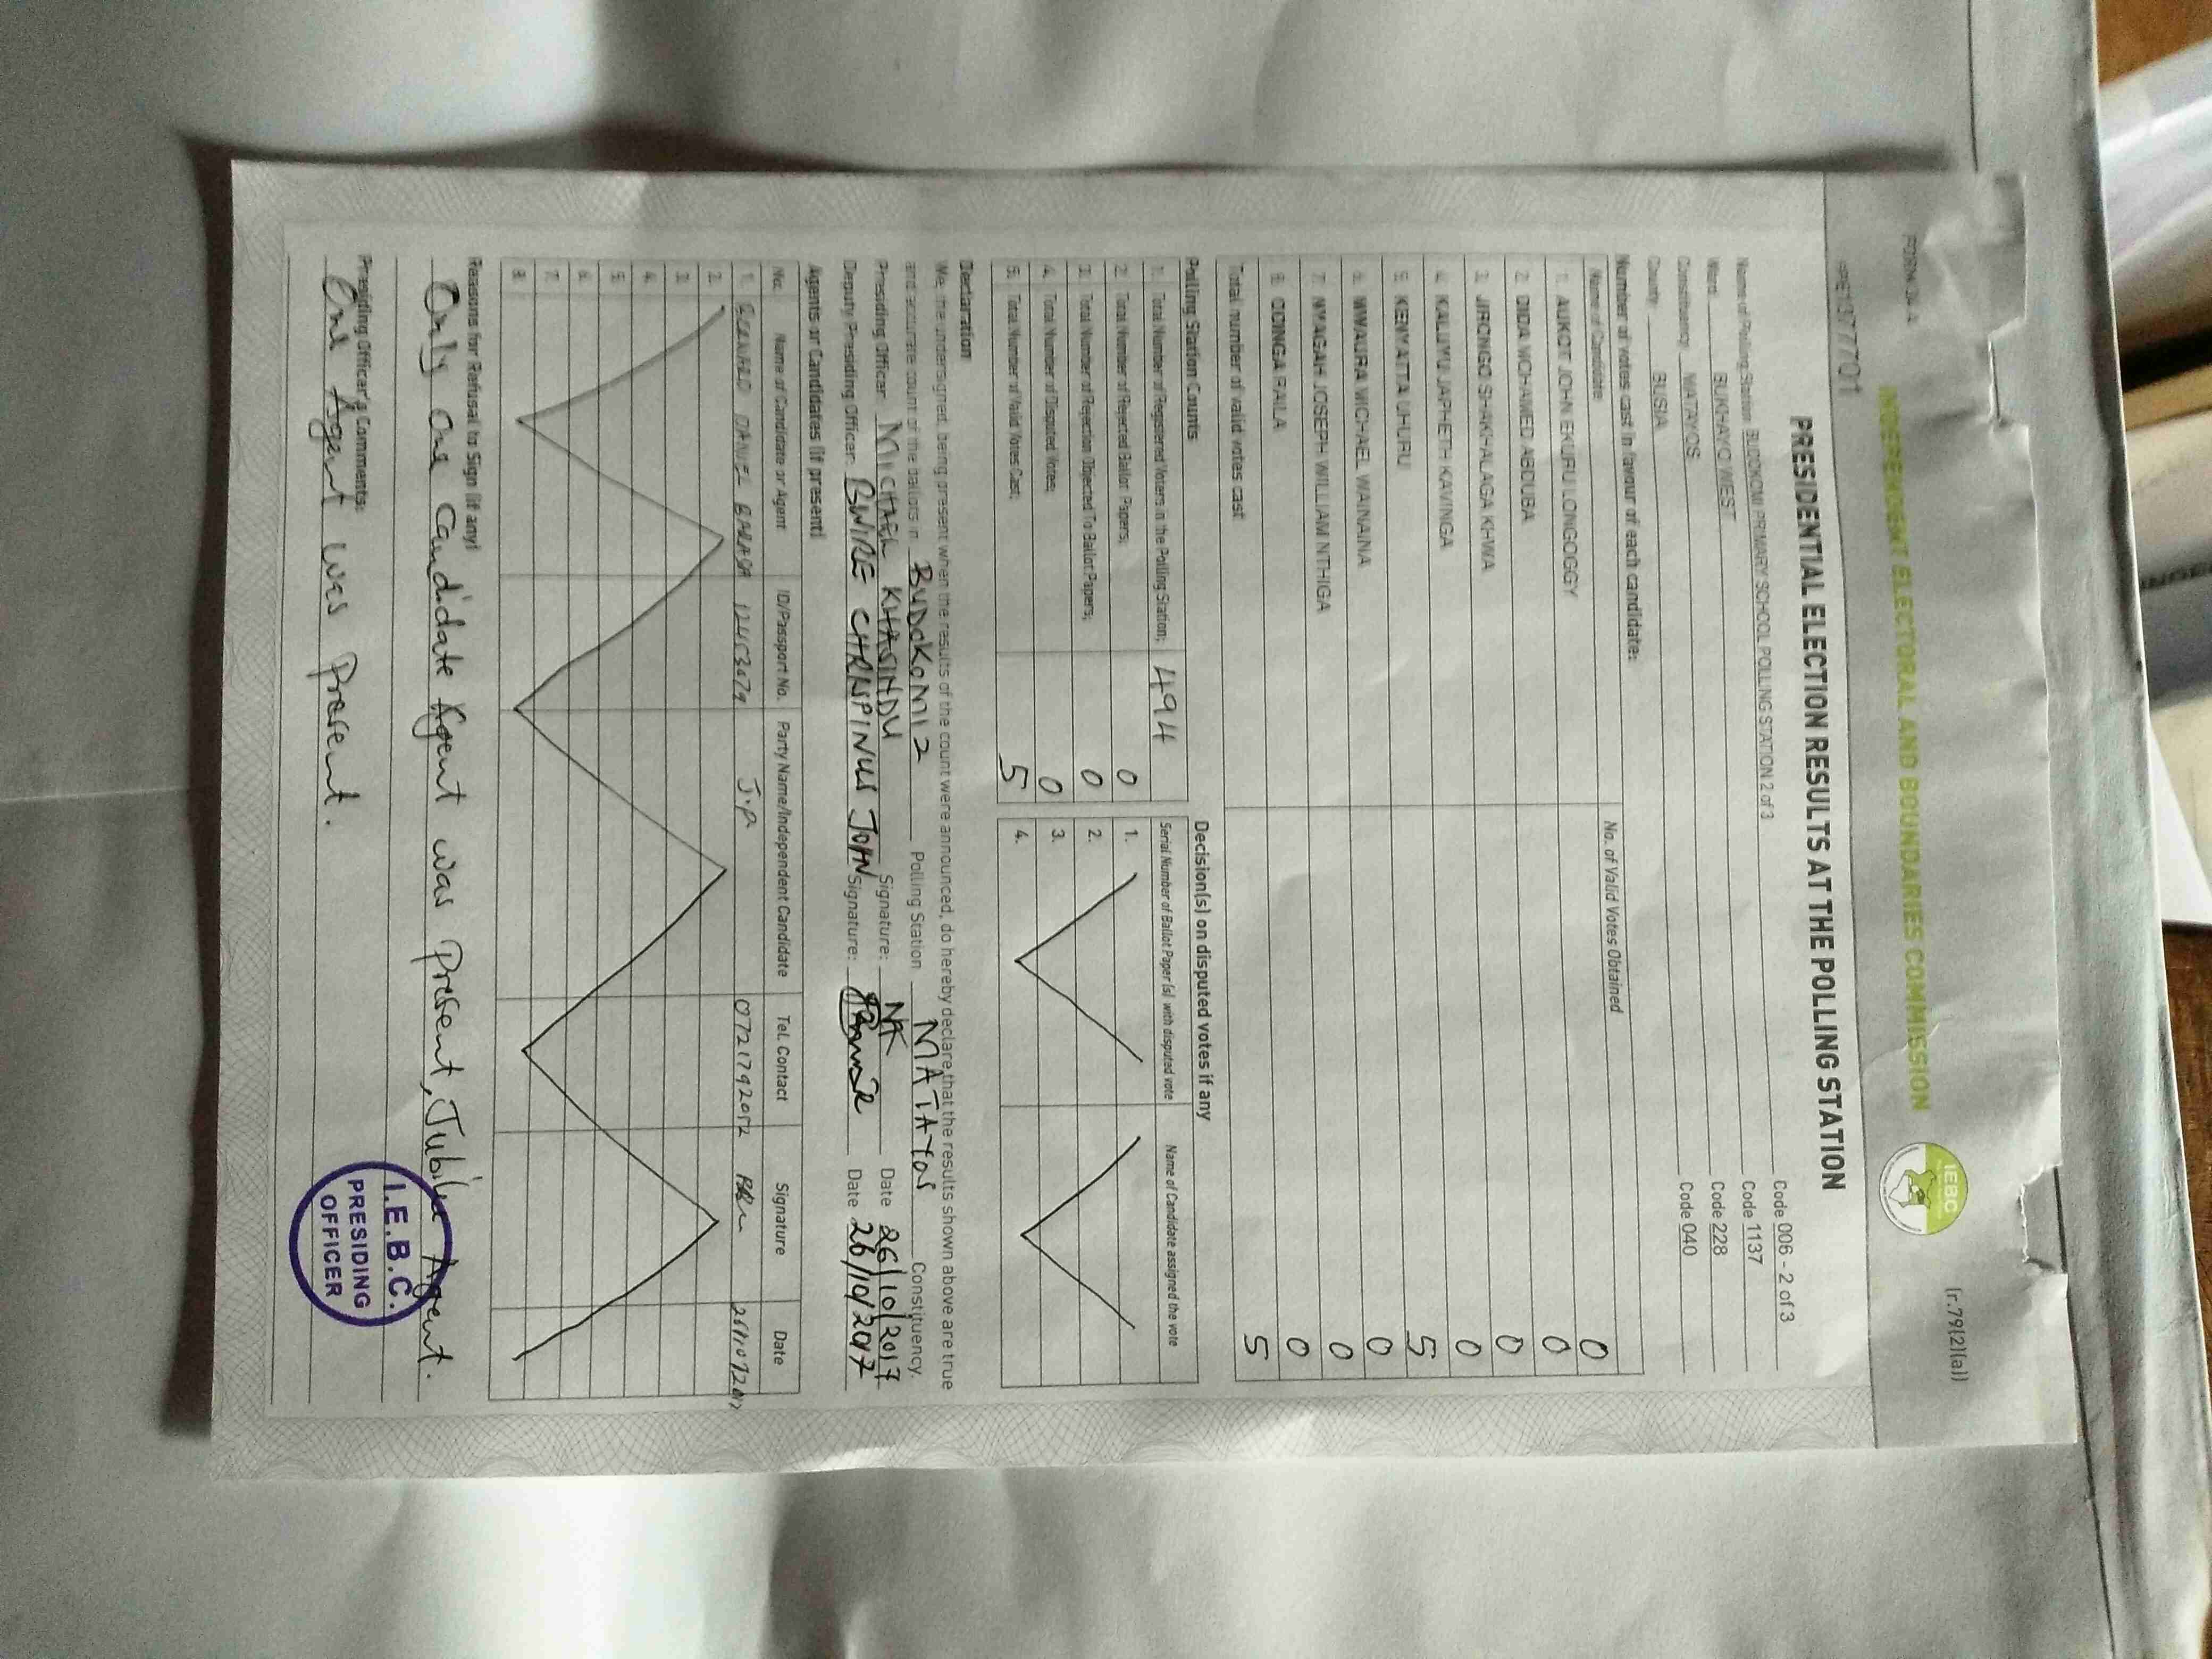 FORM 34 A
(r.79(2)(a))
INDEPENDENT ELECTORAL AND BOUNDARIES COMMISSION
IEBC
PRESIDENTIAL ELECTION RESULTS AT THE POLLING STATION
Name of Polling Station BUDOKOMI PRIMARY SCHOOL POLLING STATION 2 of 3 Code 006 - 2 of 3
Ward BUKHAYO WEST Code 1137
Constituency MATAYOS Code 228
County BUSIA Code 040
Number of votes cast in favour of each candidate:
Name of Candidate No. of Valid Votes Obtained
1. AUKOT JOHN EKURU LONGOGGY 0
2. DIDA MOHAMED ABDUBA 0
3. JIRONGO SHAKHALAGA KHWA 0
4. KALUYU JAPHETH KAVINGA 0
5. KENYATTA UHURU 5
6. MWAURA MICHAEL WAINAINA 0
7. NYAGAH JOSEPH WILLIAM NTHIGA 0
8. ODINGA RAILA 0
Total number of valid votes cast 5
Polling Station Counts
1. Total Number of Registered Voters in the Polling Station: 494
2. Total Number of Rejected Ballot Papers: 0
3. Total Number of Rejection Objected To Ballot Papers: 0
4. Total Number of Disputed Votes: 0
5. Total Number of Valid Votes Cast: 5
Decision(s) on disputed votes if any
Serial Number of Ballot Paper (s) with disputed vote Name of Candidate assigned the vote
1.
2.
3.
4.
Declaration
We, the undersigned, being present when the results of the count were announced, do hereby declare that the results shown above are true
and accurate count of the ballots in BUDOKOMI 2 Polling Station MATAYOS Constituency.
Presiding Officer MICHAEL KHASINDU Signature: Date 26/10/2017
Deputy Presiding Officer: BWIRE CHRISPINUS JOHN Signature: Date 26/10/2017
Agents or Candidates (if present)
No. Name of Candidate or Agent ID/Passport No. Party Name/Independent Candidate Tel. Contact Signature Date
1. DANIEL BARASA J.P
2.
3.
4.
5.
6.
7.
8.
Reasons for Refusal to Sign (if any)
Only one Candidate Agent was present, Jubilee Agent.
Presiding Officer's Comments:
One Agent was Present.
I.E.B.C.
PRESIDING
OFFICER